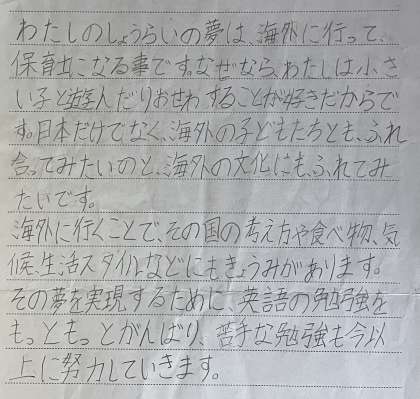 わたしのしょうらいの夢は、海外に行って、
保育士になる事です。なぜなら、わたしは小さ
い子と遊んだりおせわすることが好きだからで
す。日本だけでなく、海外の子どもたちとも、ふれ
合ってみたいのと、海外の文化にも、ふれてみ
たいです。
海外に行くことで、その国の考え方や食べ物、気
候、生活スタイルなどにもきょうみがあります。
その夢を実現するために、英語の勉強を
もっともっとがんばり、苦手な勉強も今以
上に努力していきます。